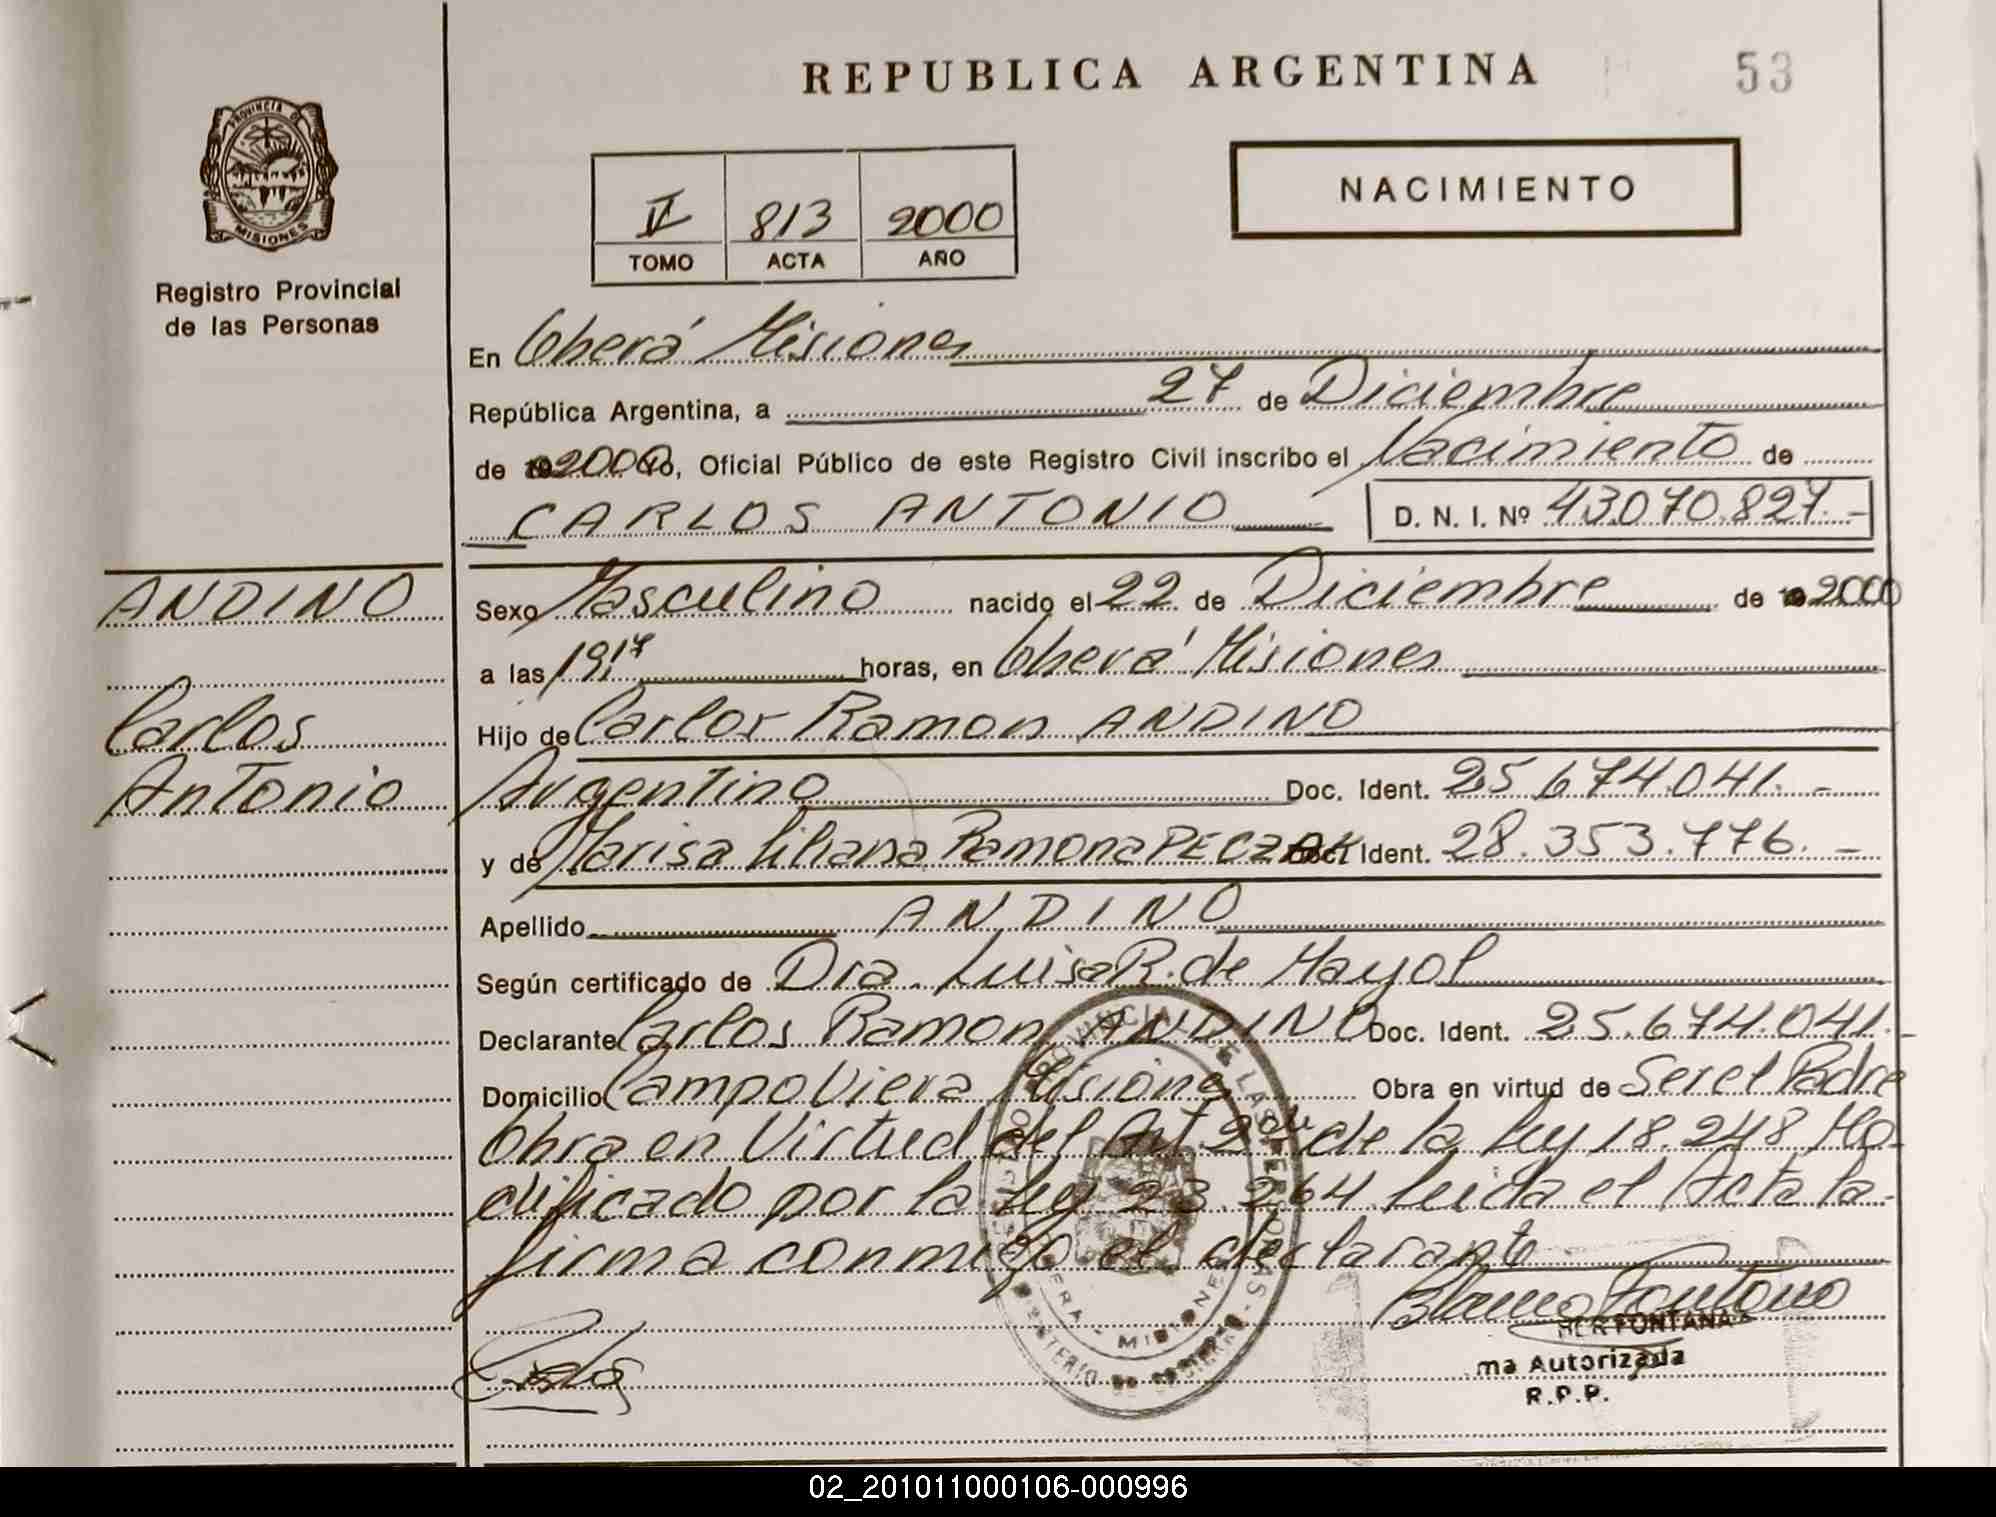 REPUBLICA ARGENTINA
53
PROVINCIA DE
MISIONES
Registro Provincial
de las Personas
NACIMIENTO
813 2000
TOMO ACTA AÑO
En Oberá Misiones
República Argentina, a 27 de Diciembre
de 2000 Yo, Oficial Público de este Registro Civil inscribo el Nacimiento de
CARLOS ANTONIO D. N. I. Nº 43.070.827.-
ANDINO
Carlos
Antonio
Sexo Masculino nacido el 22 de Diciembre de 2000
a las 19,17 horas, en Oberá Misiones
Hijo de Carlos Ramon ANDINO
Argentino Doc. Ident. 25.674.041.-
y de Marisa Liliana Ramona PECZAK Doc. Ident. 28.353.776.-
Apellido ANDINO
Según certificado de Dra. Luisa R. de Mayol
Declarante Carlos Ramon ANDINO Doc. Ident. 25.674.041.-
Domicilio Campo Viera Misiones Obra en virtud de Ser el Padre
Obra en Virtud del Art. 2 de la Ley 18.248 Mo-
dificado por la Ley 23.264 Leida el Acta la
firma conmigo el declarante
FONTANA
ma Autorizada
R.P.P.
02_201011000106-000996